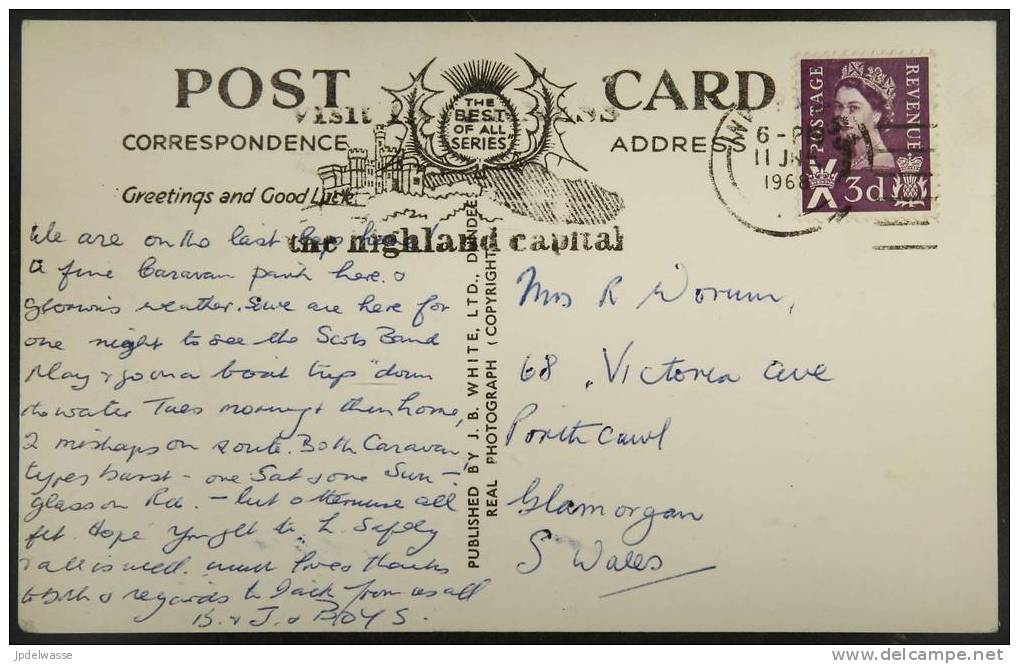 POST CARD
THE
BEST
OF ALL
SERIES
CORRESPONDENCE
ADDRESS
Greetings and Good Luck
Visit
the highland capital
6-
11 JNE
1968
POSTAGE
REVENUE
3d
We are on the last
A fine Caravan park here &
glorious weather. & we are here for
one night to see the Scots Band
Play & go on a boat trip down
the water Tues morning & then home,
2 mishaps on route. Both Caravan
types burst - one Sat & one Sun -
glass on Rd. - but otherwise all
fit. Hope you got to L. Safely
& all is well. much love & thanks
to both & regards to Jack from us all
B. & J. & BOYS.
PUBLISHED BY J. B. WHITE, LTD., DUNDEE
REAL PHOTOGRAPH (COPYRIGHT)
Mrs R Worum,
68, Victoria Ave
Porthcawl
Glamorgan
S Wales
jpdelwasse
www.delcampe.net